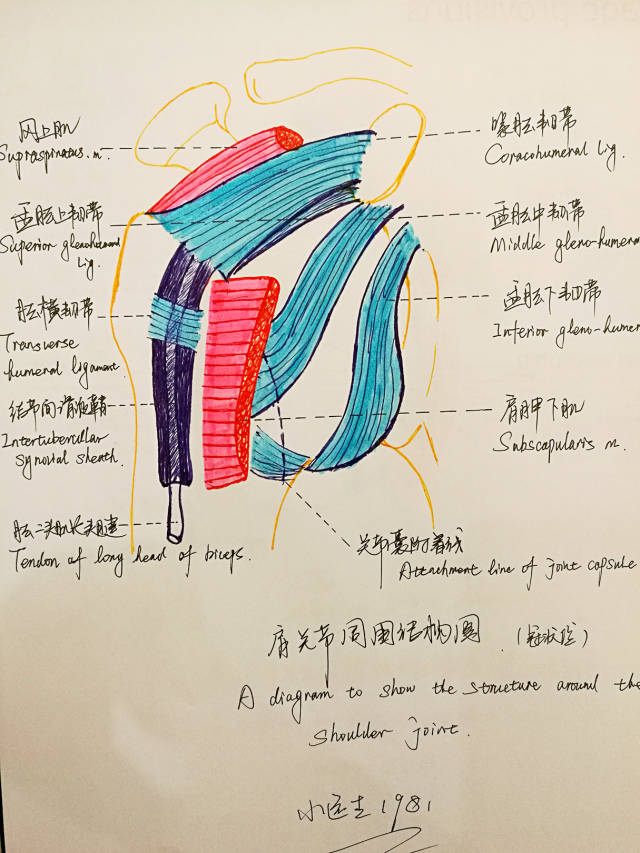 冈上肌
Supraspinatus.m.
盂肱上韧带
Superior glenohumeral
Lig.
肱横韧带
Transverse
humeral ligament.
结节间滑液鞘
Intertubercular
Synovial sheath.
肱二头肌长头腱
Tendon of long head of biceps.
喙肱韧带
Coracohumeral Lig.
盂肱中韧带
Middle gleno-humeral
盂肱下韧带
Inferior gleno-humer
肩胛下肌
Subscapularis m.
关节囊附着线
Attachment line of joint capsule
肩关节周围结构图 (冠状位)
A diagram to show the structure around the
shoulder joint.
小医生1981